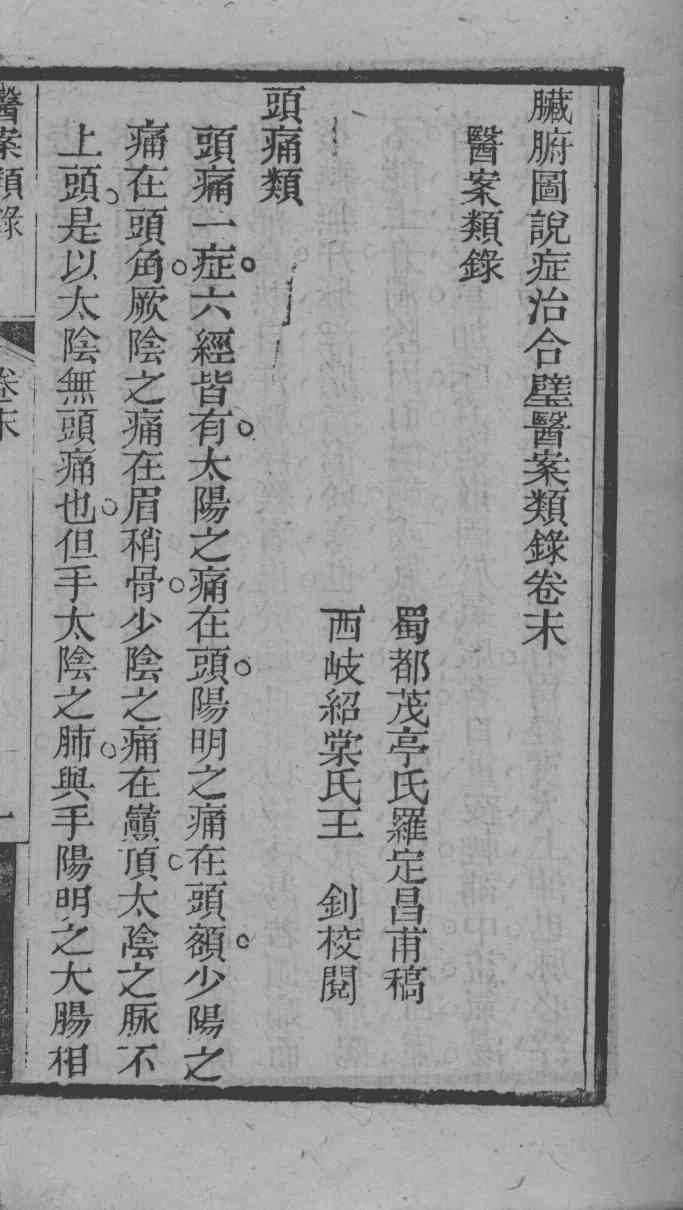 臟腑圖說症治合璧醫案類錄卷末
醫案類錄
蜀都茂亭氏羅定昌甫稿
西岐紹棠氏王　釗校閱
頭痛類
頭痛一症。六經皆有。太陽之痛在頭。陽明之痛在頭額。少陽之
痛在頭角。厥陰之痛在眉稍骨。少陰之痛在巔頂。太陰之脉不
上頭。是以太陰無頭痛也。但手太陰之肺。與手陽明之大腸相
醫案類錄
卷末
一